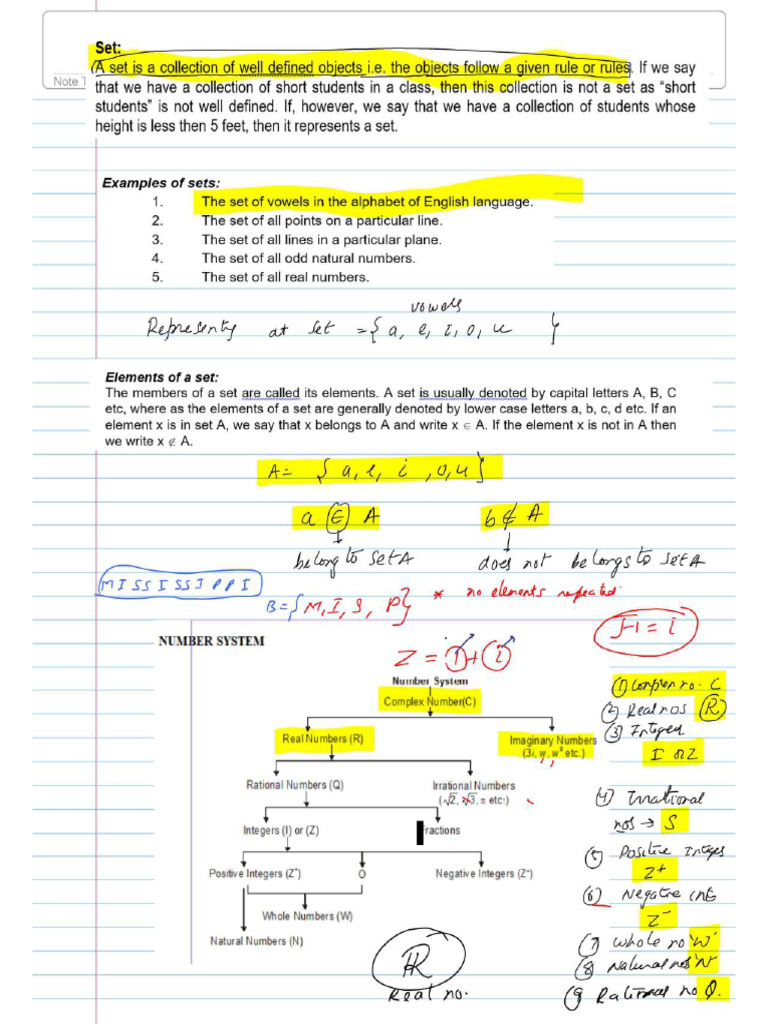 Set:
A set is a collection of well defined objects i.e. the objects follow a given rule or rules. If we say
Note T
that we have a collection of short students in a class, then this collection is not a set as “short
students” is not well defined. If, however, we say that we have a collection of students whose
height is less then 5 feet, then it represents a set.
Examples of sets:
1. The set of vowels in the alphabet of English language.
2. The set of all points on a particular line.
3. The set of all lines in a particular plane.
4. The set of all odd natural numbers.
5. The set of all real numbers.
vowels
Represents at set = { a, e, i, o, u }
Elements of a set:
The members of a set are called its elements. A set is usually denoted by capital letters A, B, C
etc, where as the elements of a set are generally denoted by lower case letters a, b, c, d etc. If an
element x is in set A, we say that x belongs to A and write x ∈ A. If the element x is not in A then
we write x ∉ A.
A = { a, e, i, o, u }
a ∈ A b ∉ A
belong to set A does not belongs to set A
MISSISSIPPI
B = { M, I, S, P } * no elements repeated.
√-1 = i
NUMBER SYSTEM
Z = 1 + i
Number System
Complex Number(C)
Real Numbers (R) Imaginary Numbers
(3i, w, w² etc.)
Rational Numbers (Q) Irrational Numbers
(√2, √3, π etc:)
Integers (I) or (Z) Fractions
Positive Integers (Z⁺) O Negative Integers (Z⁻)
Whole Numbers (W)
Natural Numbers (N)
R
Real no.
(1) Complex no. C
(2) Real nos R
(3) Integer
I or Z
(4) Irrational
nos → S
(5) Positive Integs
Z+
(6) Negative int
Z-
(7) Whole no 'W'
(8) Natural nos 'N'
(9) Rational no Q.